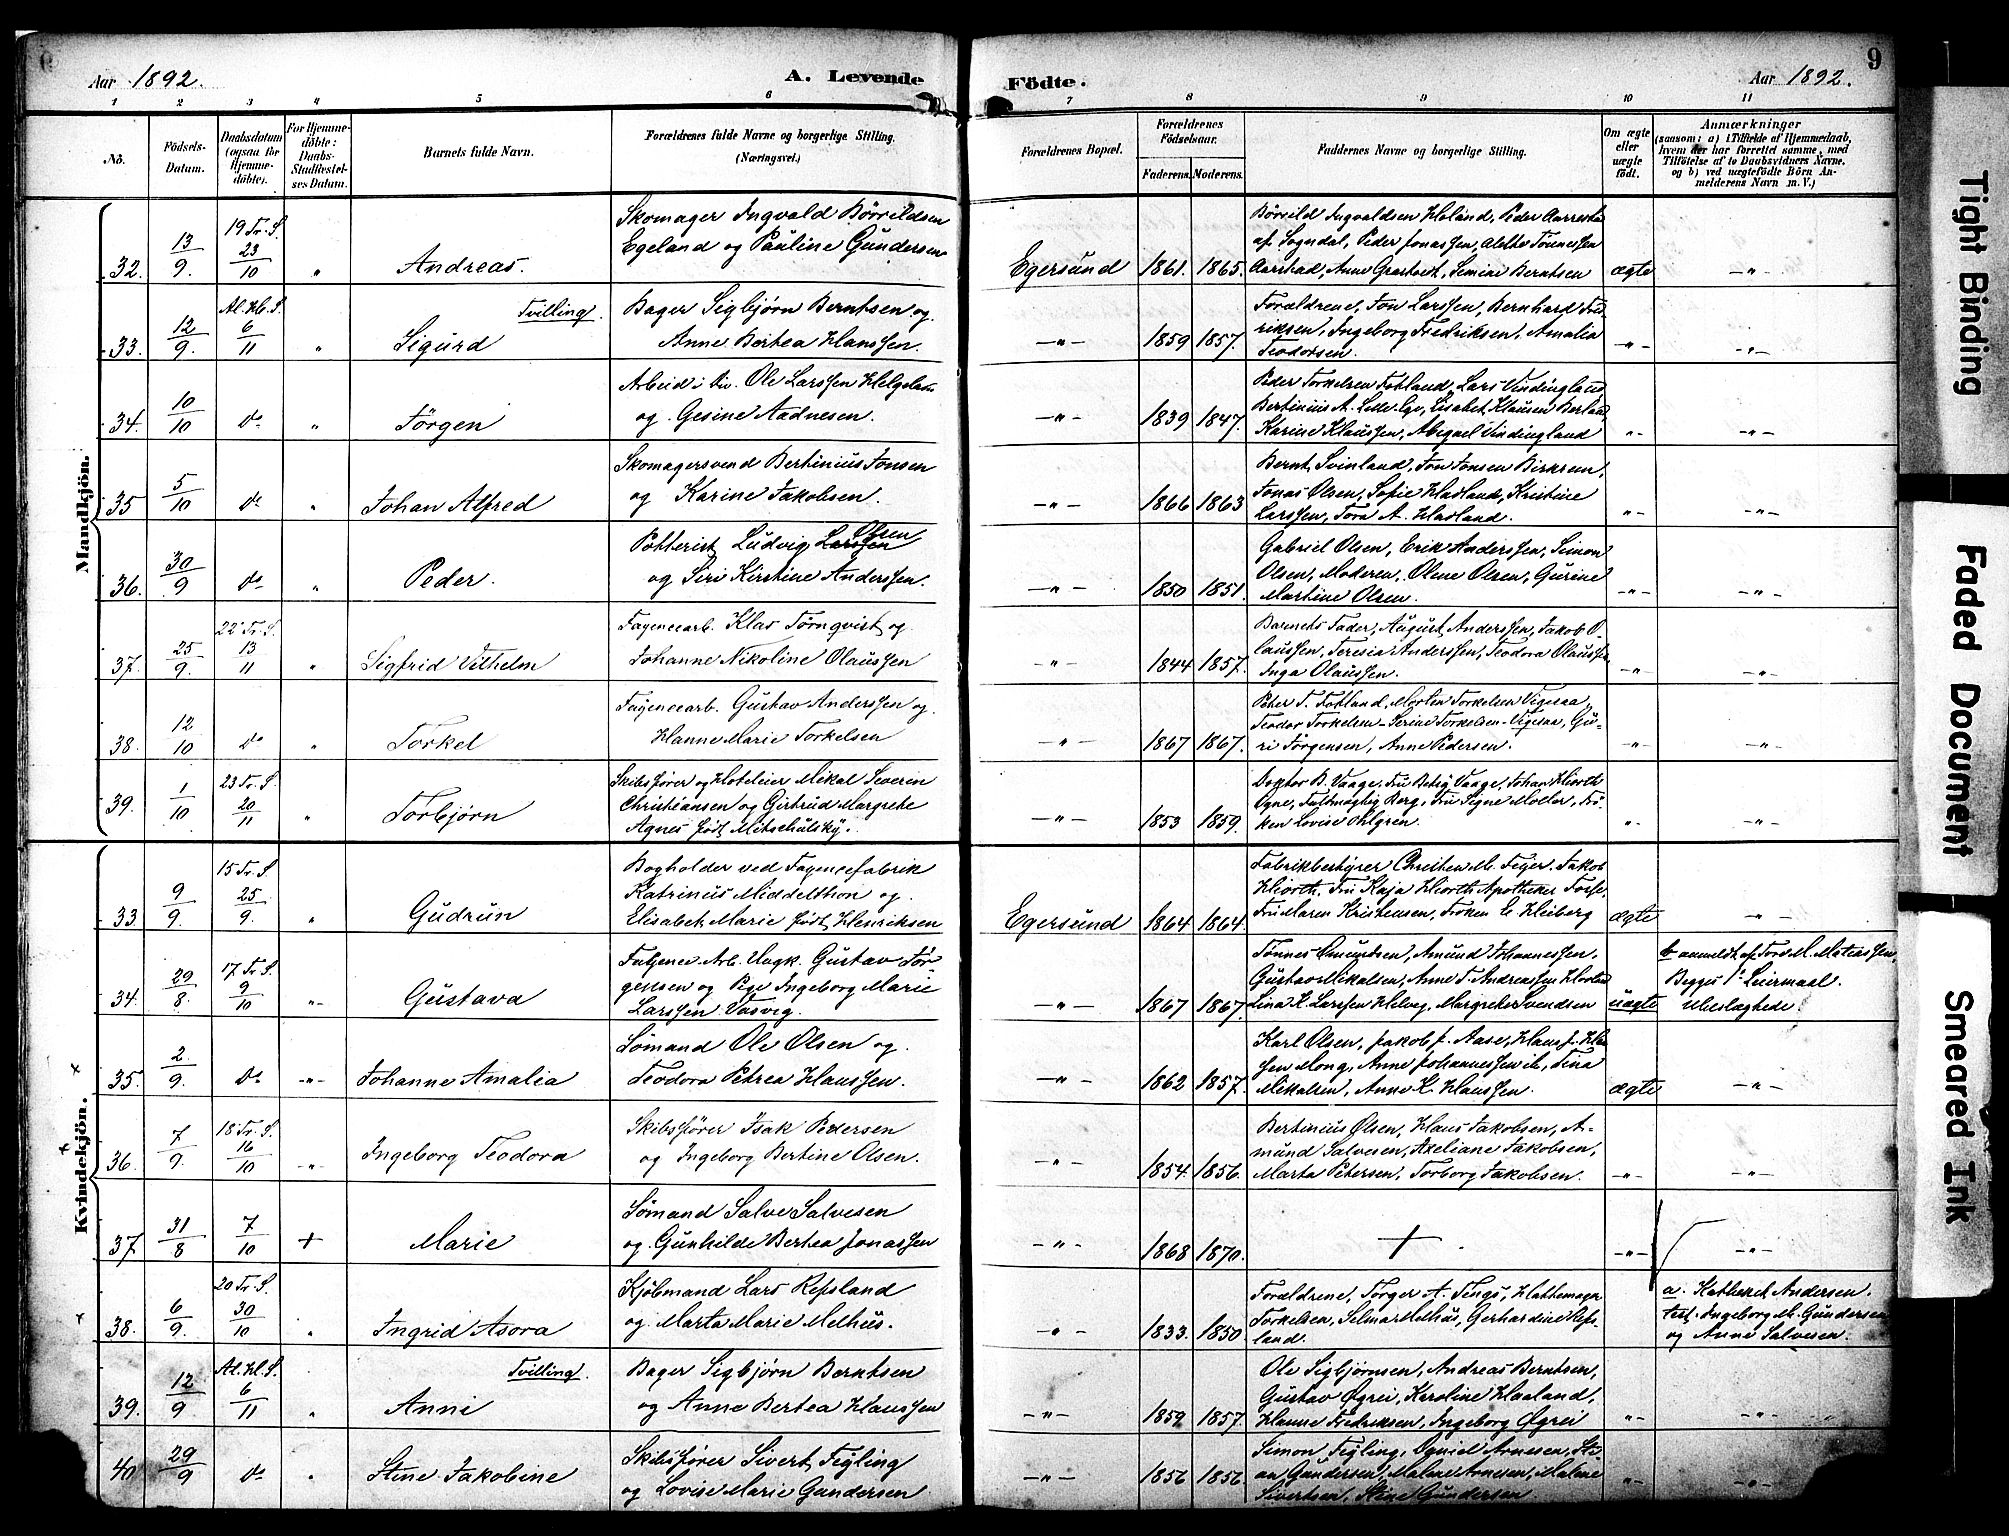 Aar 1892. A. Levende Födte. Aar 1892. 9
1 2 3 4 5 6 7 8 9 10 11
No. Födsels-Datum. Daabsdatum (ogsaa for Hjemme-döbte). For Hjemme-döbte: Daabs-Stadfæstel-ses Datum. Barnets fulde Navn. Forældrenes fulde Navne og borgerlige Stilling. (Næringsvei.) Forældrenes Bopæl. Forældrenes Födselsaar. Faderens. Moderens. Faddernes Navne og borgerlige Stilling. Om ægte eller uægte födt. Anmærkninger (saasom: a) i Tilfælde af Hjemmedaab, hvem der har forrettet samme, med Tilföielse af to Daabsvidners Navne, og b) ved uægtefödte Börn An-melderens Navn m. V.)
Mandkjön.
32. 13/9 19 Tr. S. 23/10 " Andreas. Skomager Ingvald Börrildsen
Egeland og Pauline Gundersen Egersund 1861. 1865. Börrild Ingvaldsen Høland, Peder Aarrestad
af Sogndal, Peder Jonassen, Alette Tönnessen
Aarstad, Anne Grastveit, Semine Berntsen ægte -"-
33. 12/9 Al. He. S. 6/11 " Tvilling. Sigurd Bager Sigbjørn Berntsen og
Anne Bertea Hanssen. -"- 1859 1857. Forældrene, Jon Larssen, Bernhard Fred-
riksen, Ingeborg Fredriksen, Amalia
Teodorsen. -"- -"-
34. 10/10 do " Jörgen Arbeid i Div. Ole Larssen Helgeland
og Gesine Aadnesen. -"- 1839 1847. Peder Torkelsen Fotland, Lars Vindingland
Bertinius A. Lille-Egr, Lisabet Klausen
Karine Klaussen, Abigael Vindingland -"- -"-
35 5/10 do " Johan Alfred Skomagersvend Bertinius Jonsen
og Karine Jakobsen. -"- 1866 1863 Bernt Svinland, Jon Jonsen Birkrem,
Jonas Olsen, Sofie Hadland, Kristine
Larssen, Tora A. Hadland. -"- -"-
36. 30/9 do " Peder. Potterist Ludvig Larssen Olsen
og Siri Kirstine Anderssen. -"- 1850 1851. Gabriel Olsen, Erik Anderssen, Simon
Olsen, Moderen, Olene Olsen, Gurine
Martine Olsen. -"- -"-
37. 25/9 22 Tr. S. 13/11 " Sigfrid Vilhelm Fayencearb. Klas Törnqvist og
Johanne Nikoline Olaussen -"- 1844 1857. Barnets Fader, August Anderssen, Jakob O-
laussen, Teresia Anderssen, Teodora Olaussen
Inga Olaussen. -"- -"-
38. 12/10 do " Torkel Fayencearb. Gustav Anderssen og
Hanne Marie Torkelsen -"- 1867 1867. Peter T. Fotland, Morten Torkelsen Vigesaa,
Teodor Torkelsen, Serine Torkelsen Vigesaa, Gu-
ri Jörgensen, Anne Pedersen. -"- -"-
39. 1/10 23 Tr. S. 20/11 " Torbjörn Skibsfører og Hoteleier Mikal Severin
Christiansen og Girtrud Margrete
Agnes født Mitschulsky. -"- 1853 1859. Doktor B. Vaage, Fru Betsy Vaage, Johan Hiorth
Ogne, Fuldmægtig Berg, Fru Signe Moeller, Frö-
ken Lovise Ohlgren. -"- -"-
Kvindekjön.
33. 9/9 15 Tr. S. 25/9. " Gudrun Bogholder ved Fayencefabrik
Katrinius Middelthon og
Elisabet Marie født Henriksen Egersund 1864 1864. Fabrikbestyrer Christen M. Feyer, Jakob
Hiorth, Fru Kaja Hiorth, Apotheker Torse,
Fru Maren Kristensen, Frøken E. Heiberg ægte -"-
34. 29/8 17 Tr. S. 9/10 -"- Gustava Fayence Arb. Ungk. Gustav Jör-
gensen og Pge Ingeborg Marie
Larssen Vasvig. -"- 1867 1867 Tönnes Omundsen, Amund Johannessen,
Gustav Mikalsen, Anne T. Andreassen Hovland
Lina K. Larssen Helvig, Margrete Svendsen uægte b anmeldt af Jordm. Matiassen,
Begges 1ste Leiermaal.
Ubeslægtede.
35. 2/9 do -"- Johanne Amalia Sømand Ole Olsen og
Teodora Petrea Klaussen. -"- 1862 1857. Karl Olsen, Jakob J. Aase, Hans J. Klau-
sen Mong, Anne Johannessen, Tina
Mikalsen, Anne K. Klaussen. ægte -"-
36. 7/9 18 Tr. S. 16/10 -"- Ingeborg Teodora Skibsfører Isak Pedersen
og Ingeborg Bertine Olsen. -"- 1854 1856. Bertinius Olsen, Klaus Jakobsen, A-
mund Salvesen, Axeliane Jakobsen,
Marta Petersen, Torborg Jakobsen. -"- -"-
37 31/8 7/10 + Marie Sømand Salve Salvesen
og Gunhilde Bertea Jonassen -"- 1868 1870. + -"- -"-
38. 6/9 20 Tr. S. 30/10 " Ingrid Asora Kjøbmand Lars Refsland
og Marta Marie Melhus. -"- 1833. 1850. Forældrene, Torger A. Tengs, Hattemager
Torkelsen, Selma Melhus, Gerhardine Refs-
land. a. Katheket Andersen.
test. Ingeborg M. Gundersen
og Anne Salvesen.
39. 12/9 Al. Hl. S. 6/11 " Tvilling. Anni Bager Sigbjørn Berntsen
og Anne Bertea Hanssen -"- 1859 1857. Ole Sigbjørnsen, Andreas Berntsen,
Gustav Øgrei, Karoline Haaland,
Hanne Fredriksen, Ingeborg Øgrei -"- -"-
40 29/9 do " Stine Jakobine Skibsfører Sivert Fegling
og Lovise Marie Gundersen -"- 1856 1856 Simon Fegling, Arnesen, Ste-
an Gundersen, Malene Arnesen, Malene
Sivertsen, Stine Gundersen. -"- -"-
Tight Binding
Faded Document
Smeared Ink